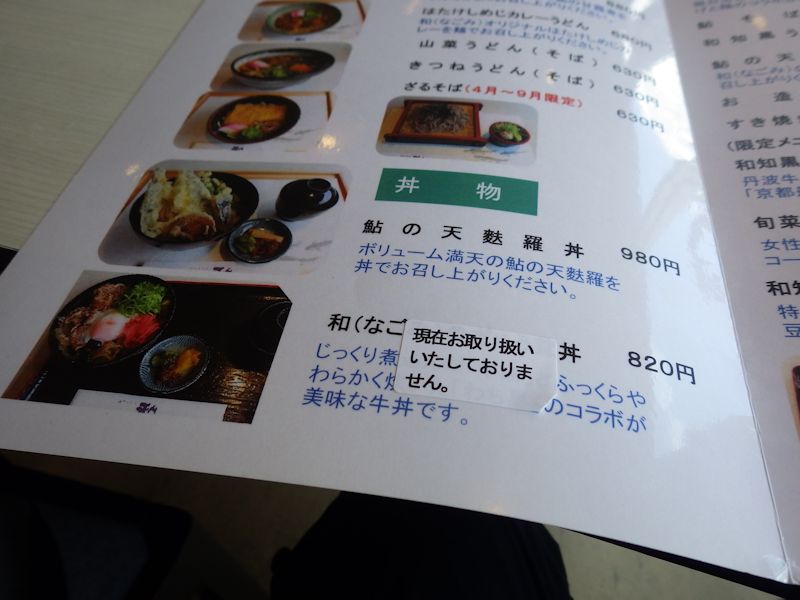 はたけしめじカレーうどん 680円
和(なごみ)オリジナルはたけしめじカ
レーを麺でお召し上がりください。
山菜うどん(そば) 630円
きつねうどん(そば) 630円
ざるそば(4月～9月限定) 630円
丼 物
鮎の天麩羅丼 980円
ボリューム満天の鮎の天麩羅を
丼でお召し上がりください。
和(なご
丼 820円
現在お取り扱い
いたしておりま
せん。
じっくり煮
ふっくらや
わらかく
のコラボが
美味な牛丼です。
鮎そば
和知黒
鮎の天
和(なごみ)
召し上がり
お造
すき焼
(限定メニ
和知黒
丹波牛
「京都
旬菜
女性
コー
和知
特
豆